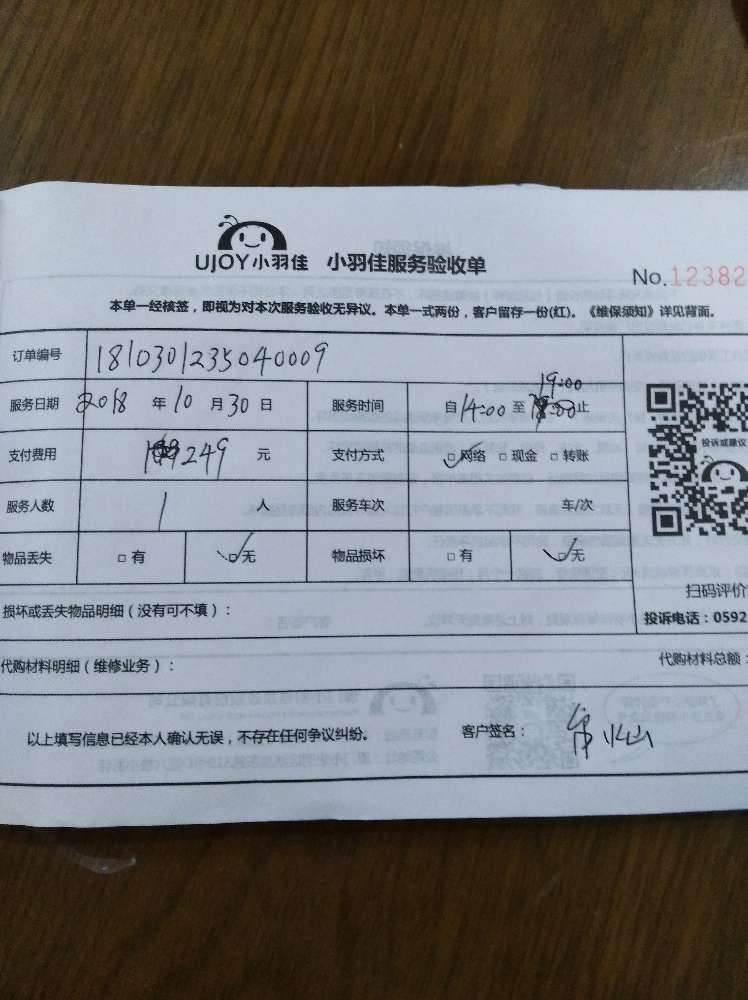 UJOY小羽佳 小羽佳服务验收单
No.12382
本单一经核签，即视为对本次服务验收无异议。本单一式两份，客户留存一份(红)。《维保须知》详见背面。
订单编号 1810301235040009
服务日期 2018 年 10 月 30 日 服务时间 自 14:00 至 19:00 止
支付费用 249 元 支付方式 ☑网络 □现金 □转账
服务人数 1 人 服务车次 车/次
物品丢失 □有 ☑无 物品损坏 □有 ☑无
投诉或建议
扫码评价
损坏或丢失物品明细（没有可不填）：
投诉电话：0592
代购材料明细（维修业务）：
代购材料总额：
以上填写信息已经本人确认无误，不存在任何争议纠纷。 客户签名：